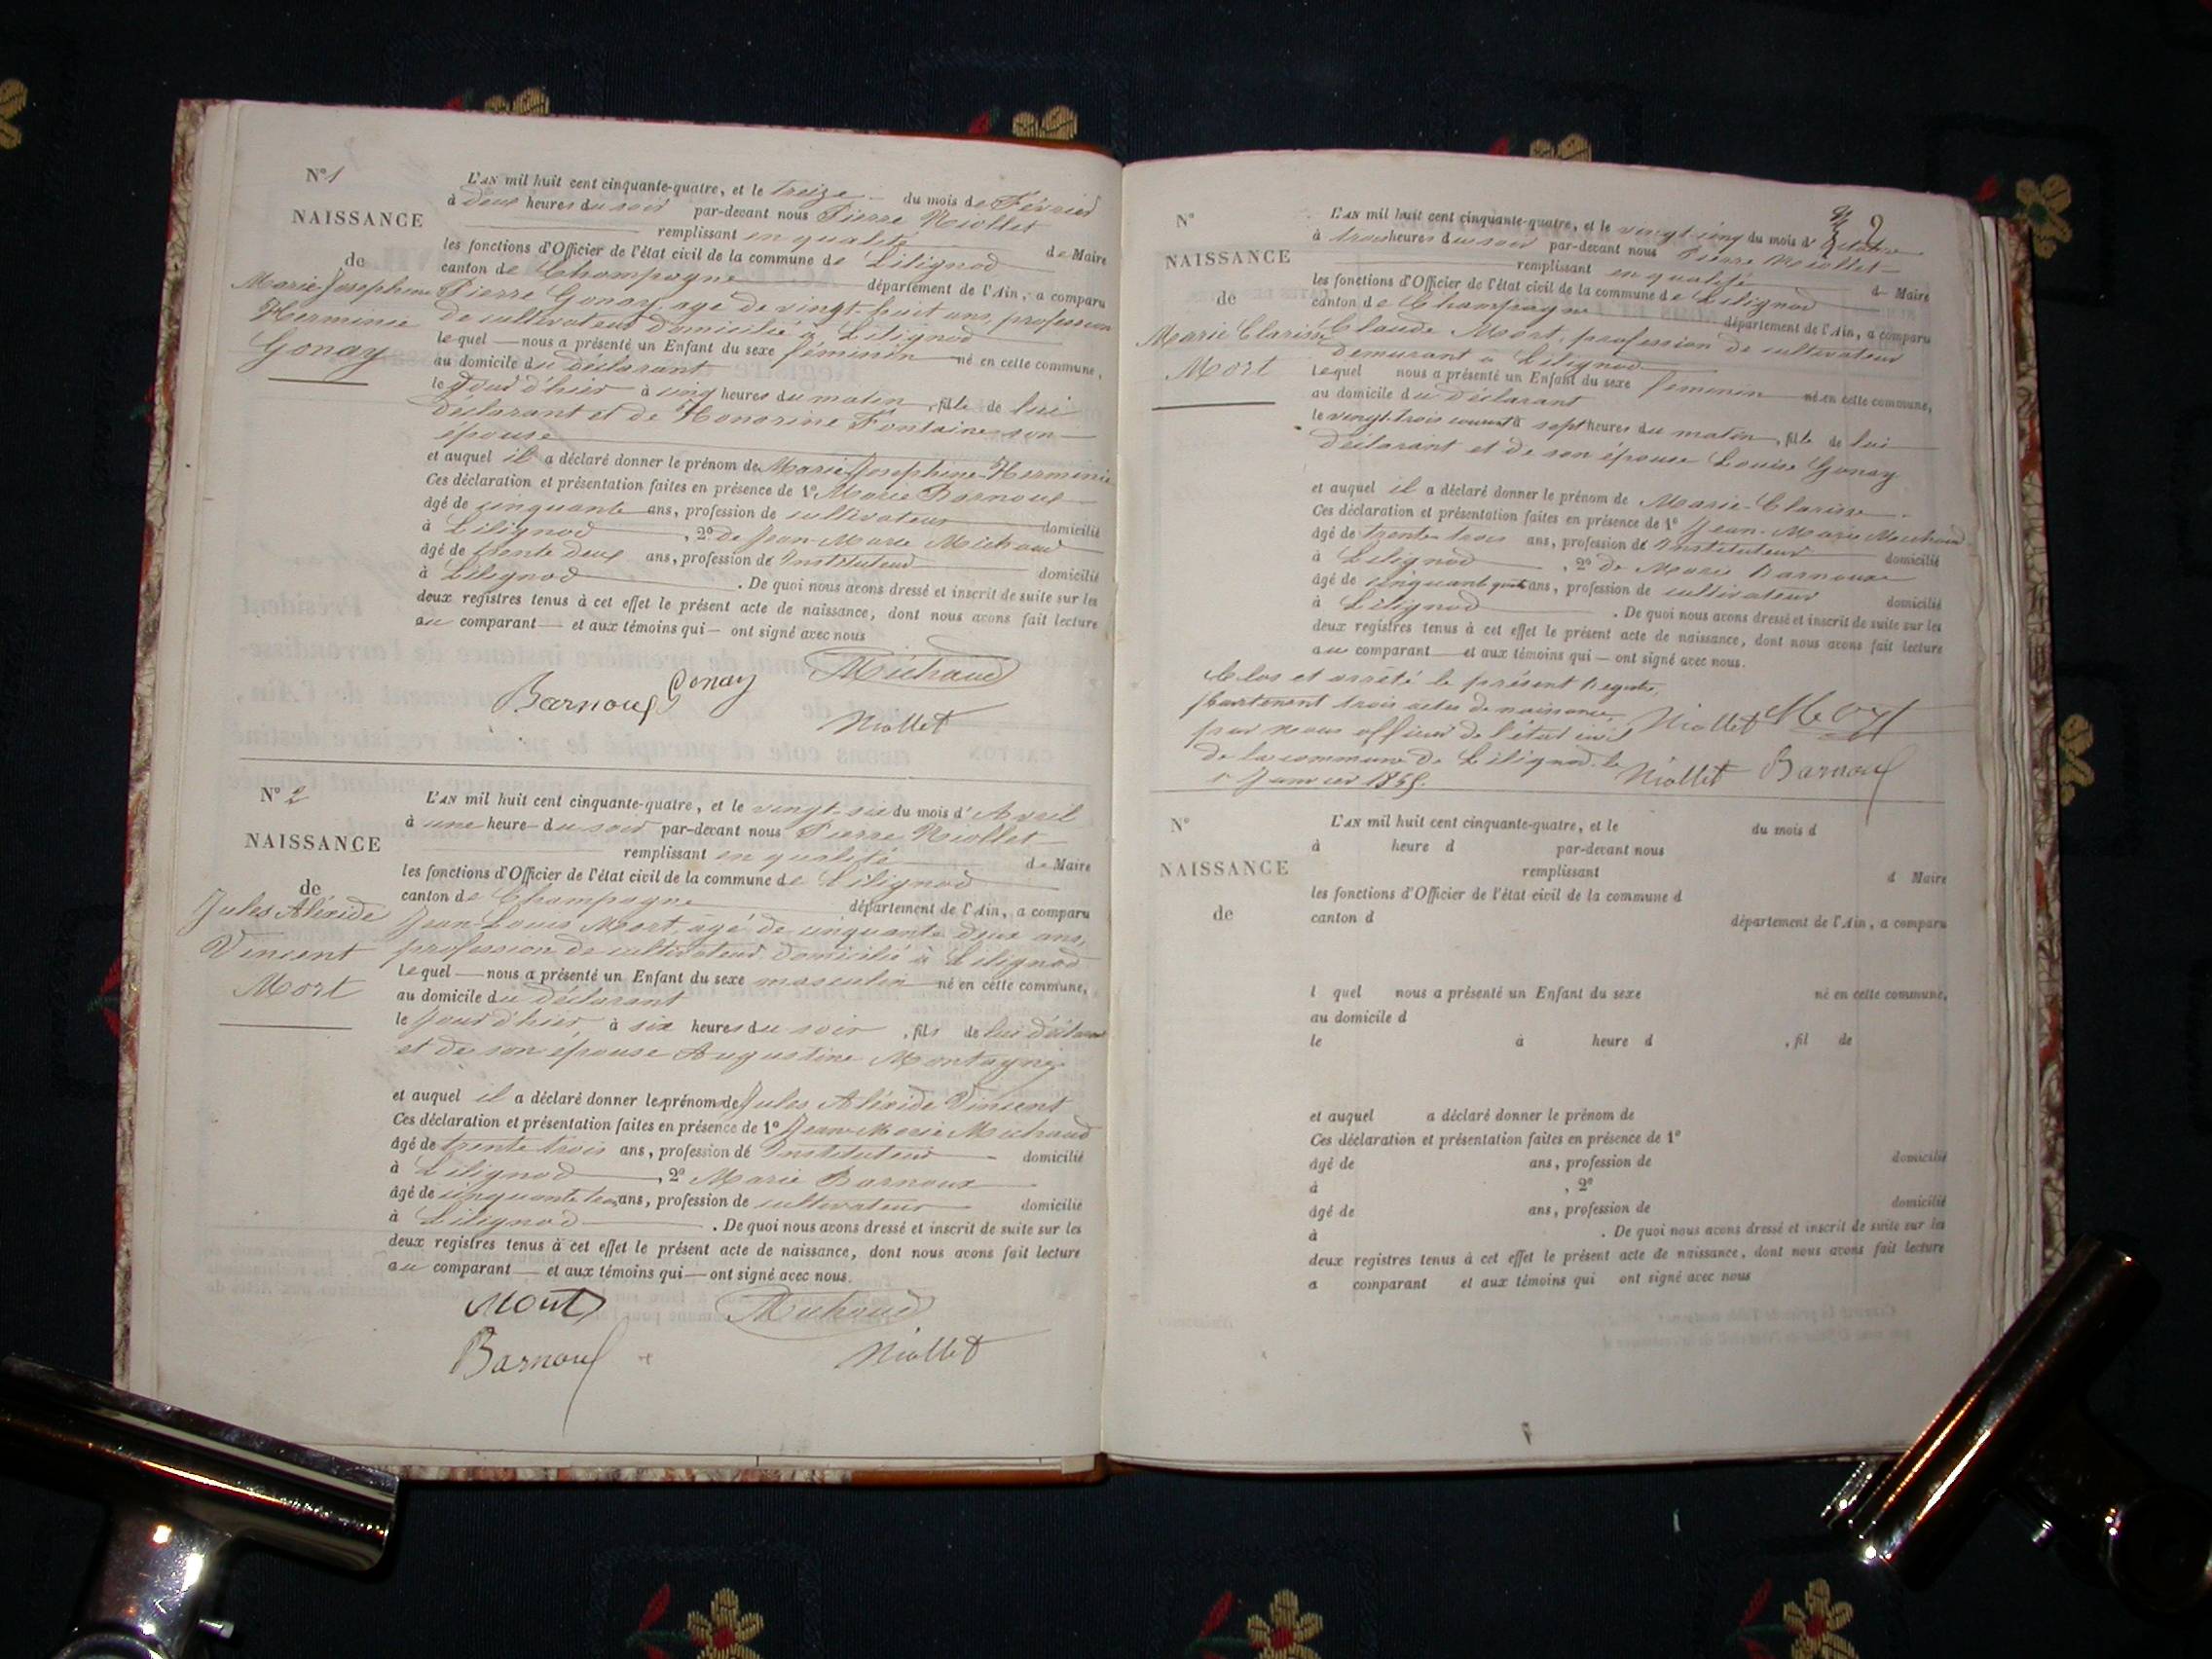 N° 1
NAISSANCE
de
Marie Josephine
Herminie
Gonay
L'AN mil huit cent cinquante-quatre, et le treize du mois de Février
à deux heures du soir par-devant nous Pierre Niollet
remplissant en qualité de Maire
les fonctions d'Officier de l'état civil de la commune de Lilignod
canton de Champagne département de l'Ain, a comparu
Pierre Gonay, agé de vingt-huit ans, profession
de cultivateur domicilié à Lilignod
lequel nous a présenté un Enfant du sexe féminin né en cette commune,
au domicile du déclarant
le jour d'hier à cinq heures du matin, fille de lui
déclarant et de Honorine Fontaine son
épouse
et auquel il a déclaré donner le prénom de Marie Josephine Herminie
Ces déclaration et présentation faites en présence de 1° Marie Barnoux
âgé de cinquante ans, profession de cultivateur domicilié
à Lilignod, 2° de Jean-Marie Michaud
âgé de trente deux ans, profession de Instituteur domicilié
à Lilignod. De quoi nous avons dressé et inscrit de suite sur les
deux registres tenus à cet effet le présent acte de naissance, dont nous avons fait lecture
au comparant et aux témoins qui ont signé avec nous
Michaud
Barnoux Gonay
Niollet
N° 2
NAISSANCE
de
Jules Aléxide
Vincent
Mort
L'AN mil huit cent cinquante-quatre, et le vingt-six du mois d'Avril
à une heure du soir par-devant nous Pierre Niollet
remplissant en qualité de Maire
les fonctions d'Officier de l'état civil de la commune de Lilignod
canton de Champagne département de l'Ain, a comparu
Jean-Louis Mort, âgé de cinquante deux ans,
profession de cultivateur domicilié à Lilignod
lequel nous a présenté un Enfant du sexe masculin né en cette commune,
au domicile du déclarant
le jour d'hier à six heures du soir, fils de lui déclarant
et de son épouse Augustine Montagne
et auquel il a déclaré donner le prénom de Jules Aléxide Vincent
Ces déclaration et présentation faites en présence de 1° Jean-Marie Michaud
âgé de trente trois ans, profession de Instituteur domicilié
à Lilignod, 2° Marie Barnoux
âgé de cinquante ans, profession de cultivateur domicilié
à Lilignod. De quoi nous avons dressé et inscrit de suite sur les
deux registres tenus à cet effet le présent acte de naissance, dont nous avons fait lecture
au comparant et aux témoins qui ont signé avec nous.
Mort Michaud
Barnoux Niollet
2
N°
NAISSANCE
de
Marie Clarisse
Mort
L'AN mil huit cent cinquante-quatre, et le vingt cinq du mois d'
à trois heures du soir par-devant nous Pierre Niollet
remplissant en qualité de Maire
les fonctions d'Officier de l'état civil de la commune de Lilignod
canton de Champagne département de l'Ain, a comparu
Claude Mort, profession de cultivateur
demurant à Lilignod
lequel nous a présenté un Enfant du sexe féminin né en cette commune,
au domicile du déclarant
le vingt-trois courant à sept heures du matin, fille de lui
déclarant et de son épouse Louise Gonay
et auquel il a déclaré donner le prénom de Marie-Clarisse
Ces déclaration et présentation faites en présence de 1° Jean-Marie Michaud
âgé de trente trois ans, profession de Instituteur domicilié
à Lilignod, 2° de Marie Barnoux
âgé de cinquante quatre ans, profession de cultivateur domicilié
à Lilignod. De quoi nous avons dressé et inscrit de suite sur les
deux registres tenus à cet effet le présent acte de naissance, dont nous avons fait lecture
au comparant et aux témoins qui ont signé avec nous.
Clos et arrêté le présent Registre,
trois actes de naissance,
par nous officier de l'état civil Niollet
de la commune de Lilignod le Niollet Barnoux
1er Janvier 1855.
N°
NAISSANCE
de
L'AN mil huit cent cinquante-quatre, et le du mois d
à heure d par-devant nous
remplissant d Maire
les fonctions d'Officier de l'état civil de la commune d
canton d département de l'Ain, a comparu
l quel nous a présenté un Enfant du sexe né en cette commune,
au domicile d
le à heure d , fil de
et auquel a déclaré donner le prénom de
Ces déclaration et présentation faites en présence de 1°
âgé de ans, profession de domicilié
à , 2°
âgé de ans, profession de domicilié
à . De quoi nous avons dressé et inscrit de suite sur les
deux registres tenus à cet effet le présent acte de naissance, dont nous avons fait lecture
a comparant et aux témoins qui ont signé avec nous